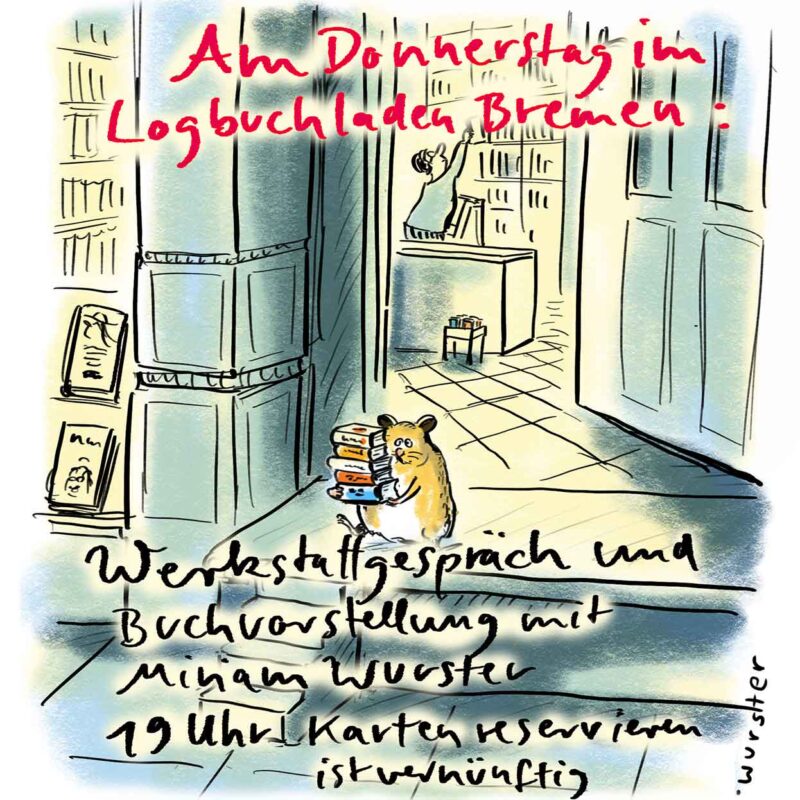 Am Donnerstag im
Logbuchladen Bremen :
Werkstattgespräch und
Buchvorstellung mit
Miriam Wurster
19 Uhr! Karten reservieren
ist vernünftig
wurster